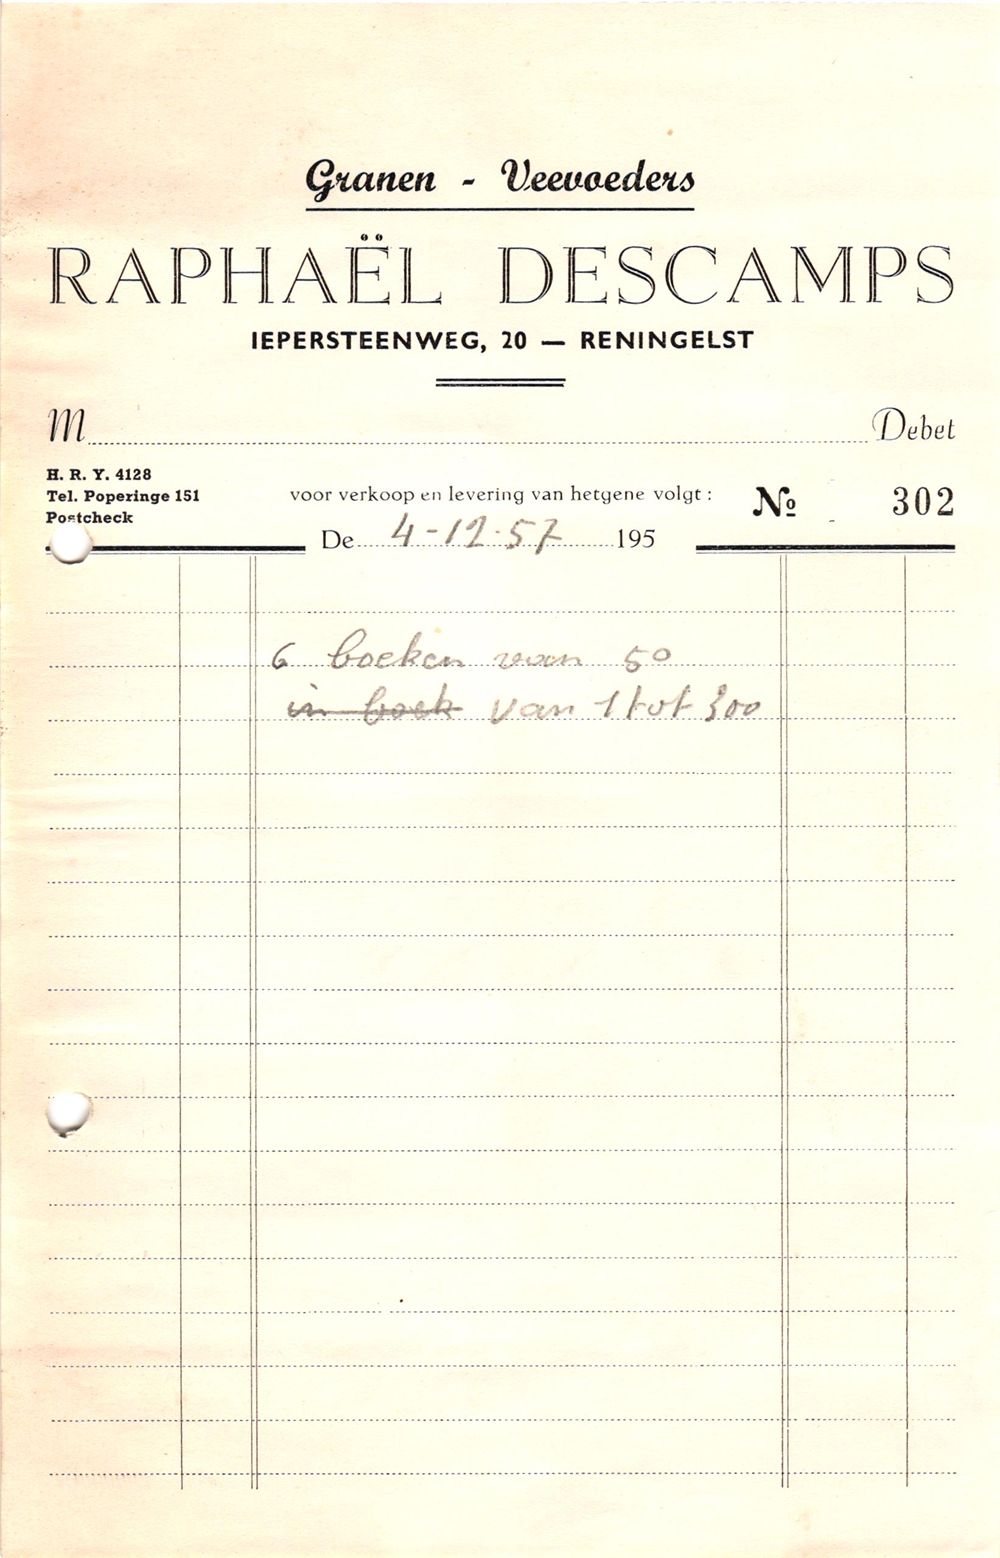 Granen - Veevoeders
RAPHAËL DESCAMPS
IEPERSTEENWEG, 20 — RENINGELST
M Debet
H. R. Y. 4128
Tel. Poperinge 151
Postcheck
voor verkoop en levering van hetgene volgt :
No 302
De 4-12-57 195
6 boeken van 50
in boek van 1 tot 300